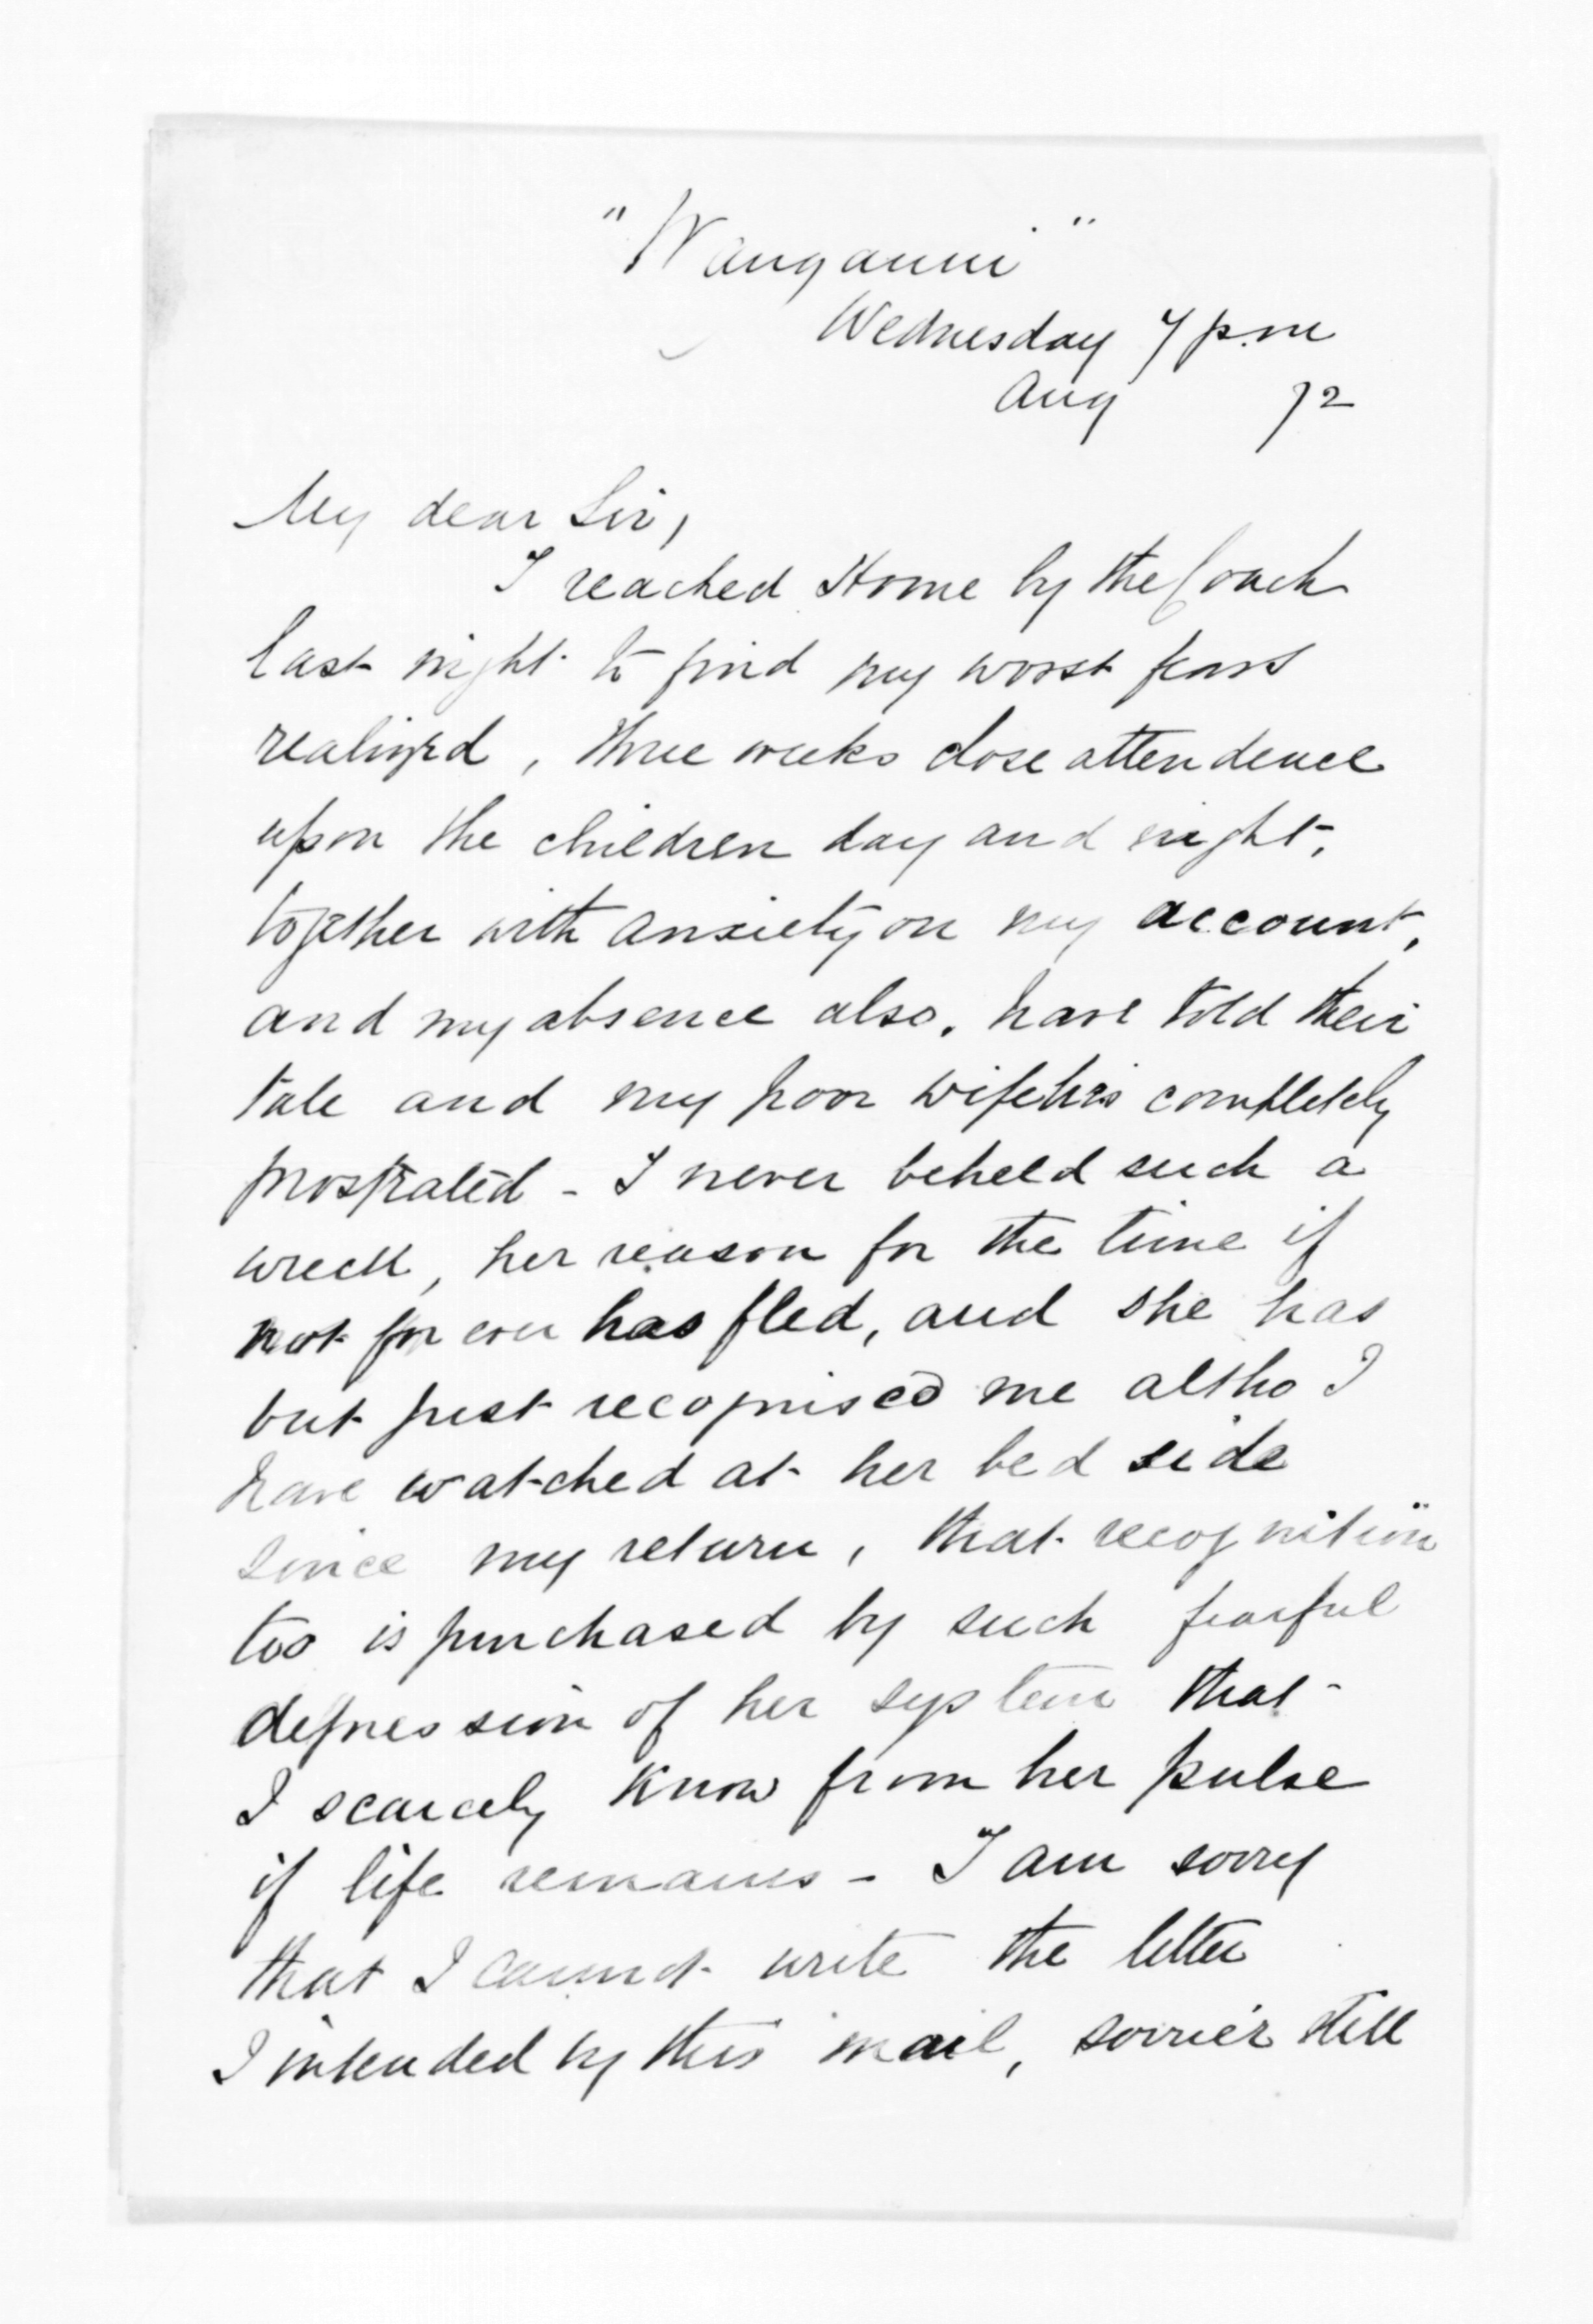 "Wanganui"
Wednesday 7 p.m
Aug 72
My dear Sir,
I reached Home by the Coach
last night to find my worst fears
realized, three weeks close attendence
upon the children day and night,
together with anxiety on my account,
and my absence also, have told their
tale and my poor wife is completely
prostrated - I never beheld such a
wreck, her reason for the time if
not for ever has fled, and she has
but just recognised me altho I
have watched at her bed side
since my return, that recognition
too is purchased by such fearful
depression of her system that
I scarcely know from her pulse
if life remains - I am sorry
that I cannot write the letter
I intended by this mail, sorrier still